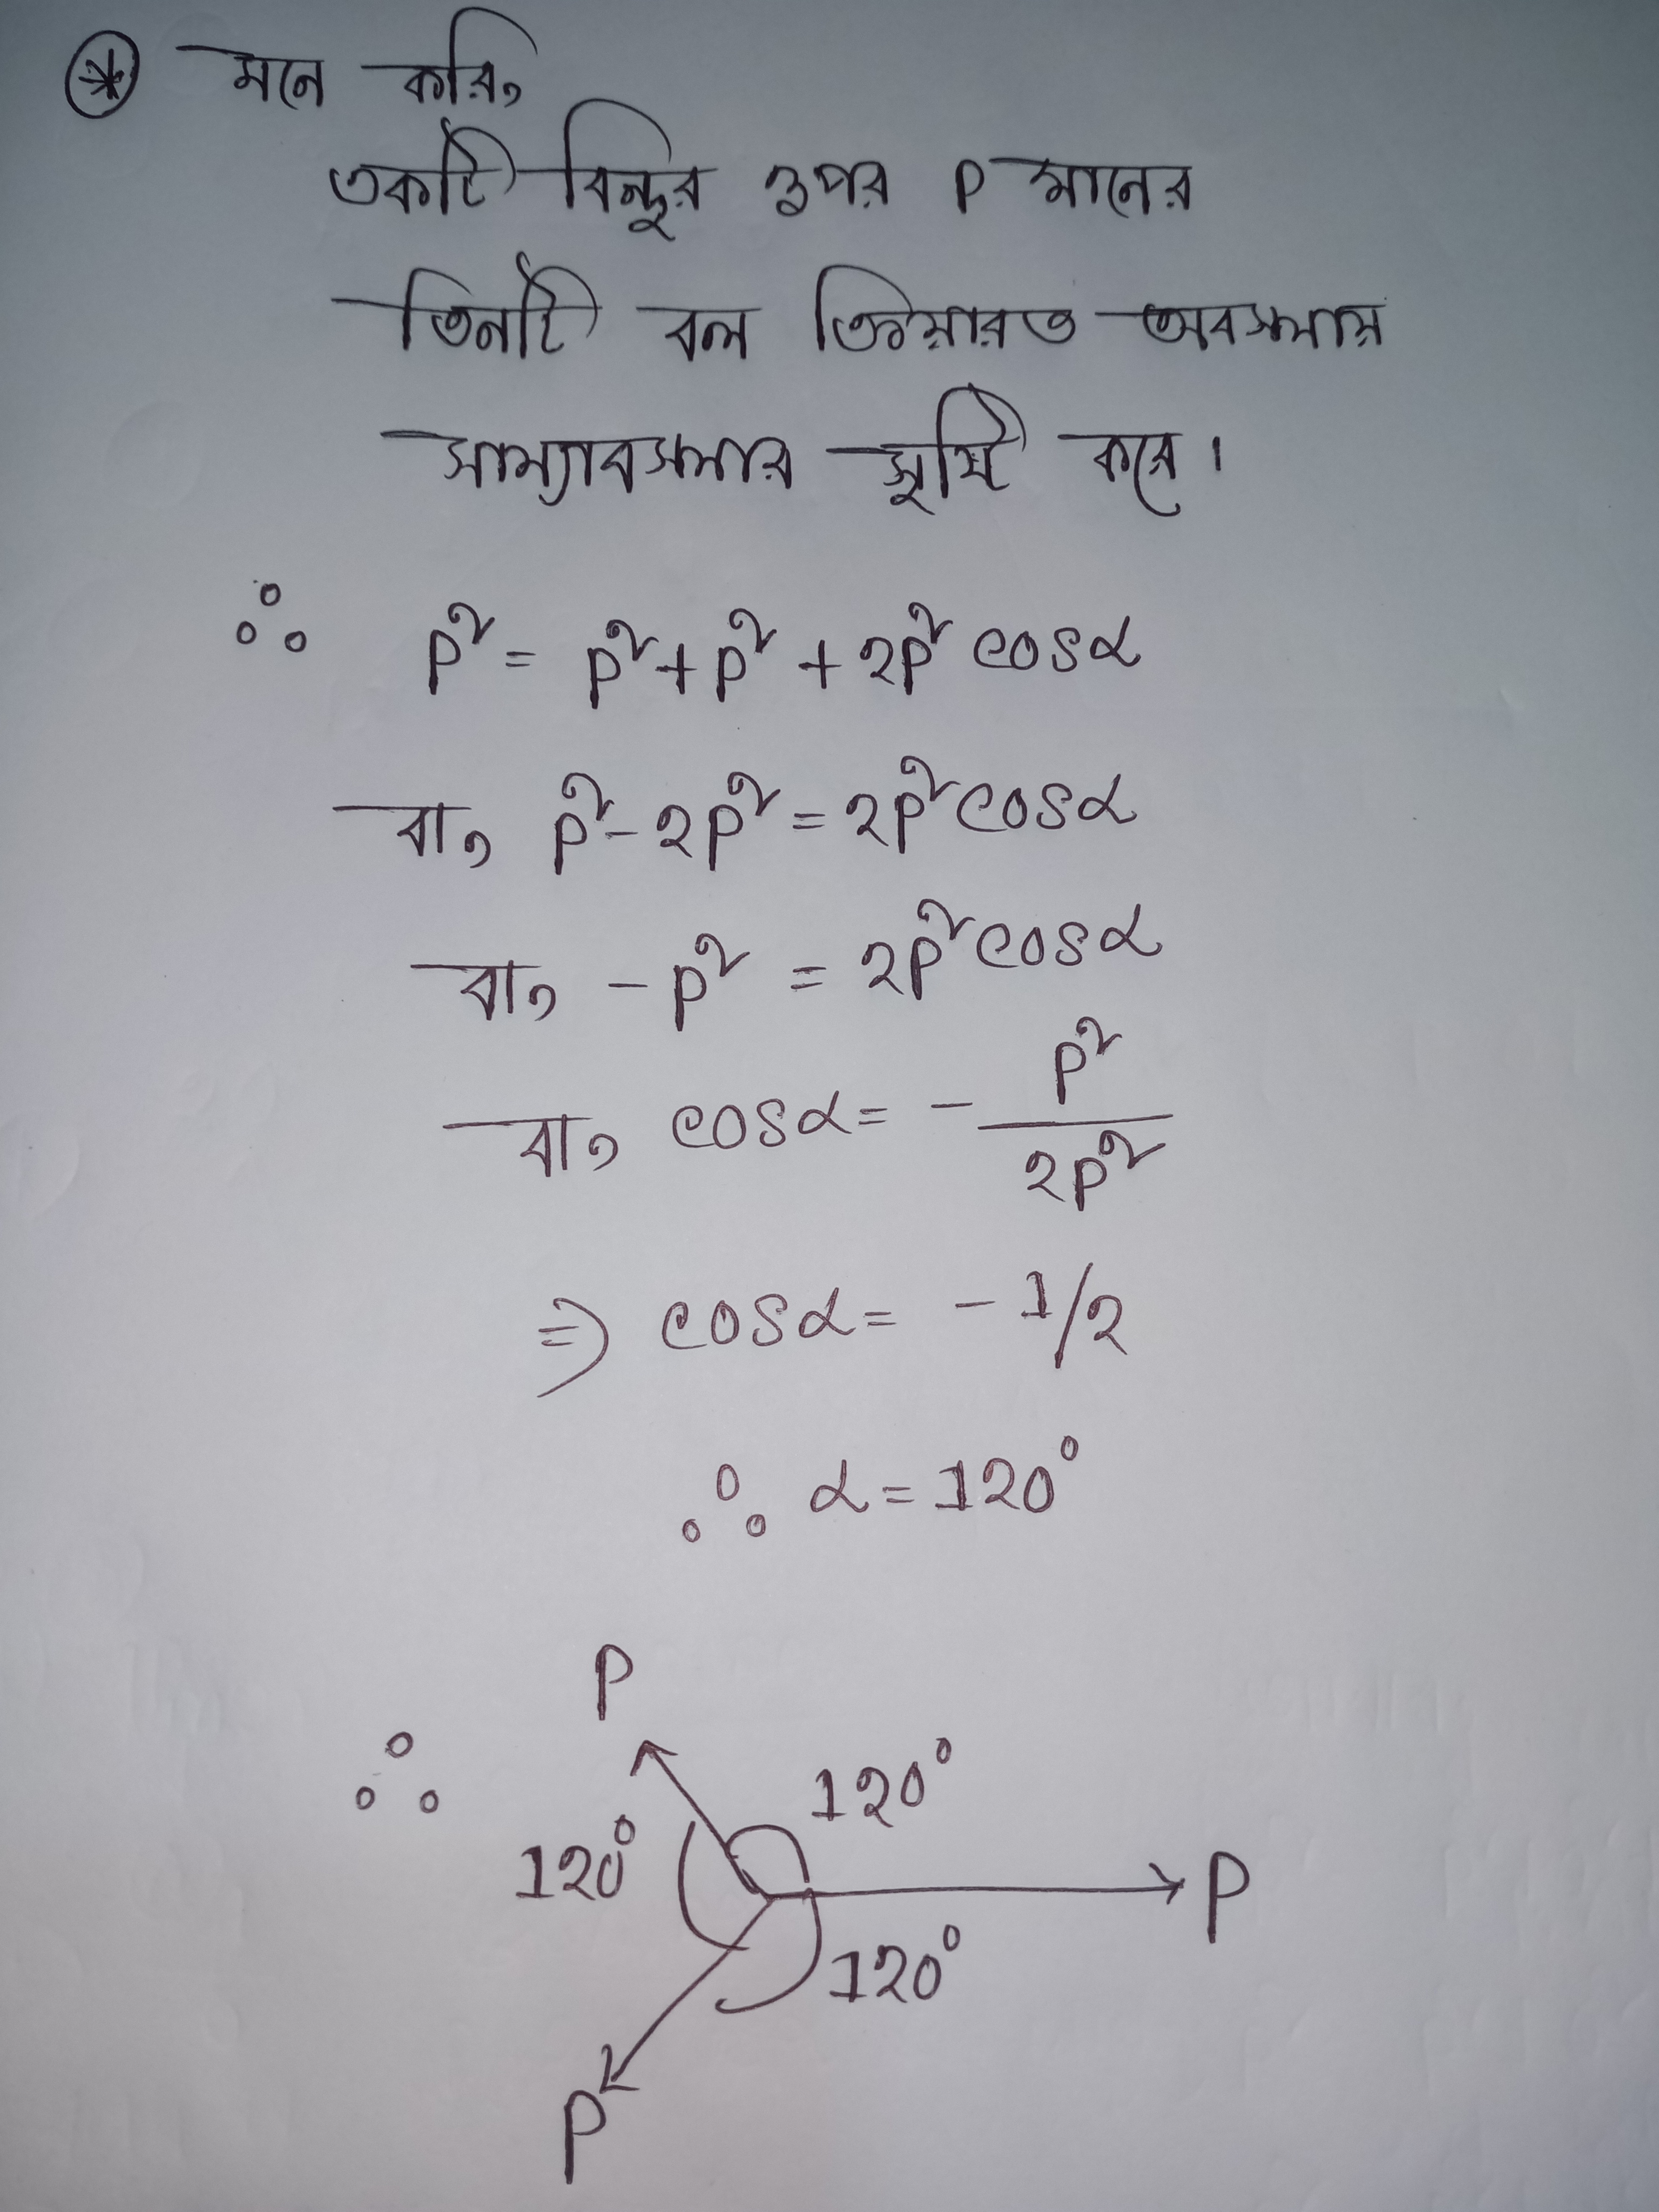 মনে করি,
একটি বিন্দুর উপর P মানের
তিনটি বল ক্রিয়ারত অবস্থায়
সাম্যাবস্থার সৃষ্টি করে।
∴ P² = P² + P² + 2P² cosα
বা, P² - 2P² = 2P² cosα
বা, - P² = 2P² cosα
বা, cosα = - P²/2P²
⇒ cosα = - 1/2
∴ α = 120°
P
∴ 120°
120° P
120°
P